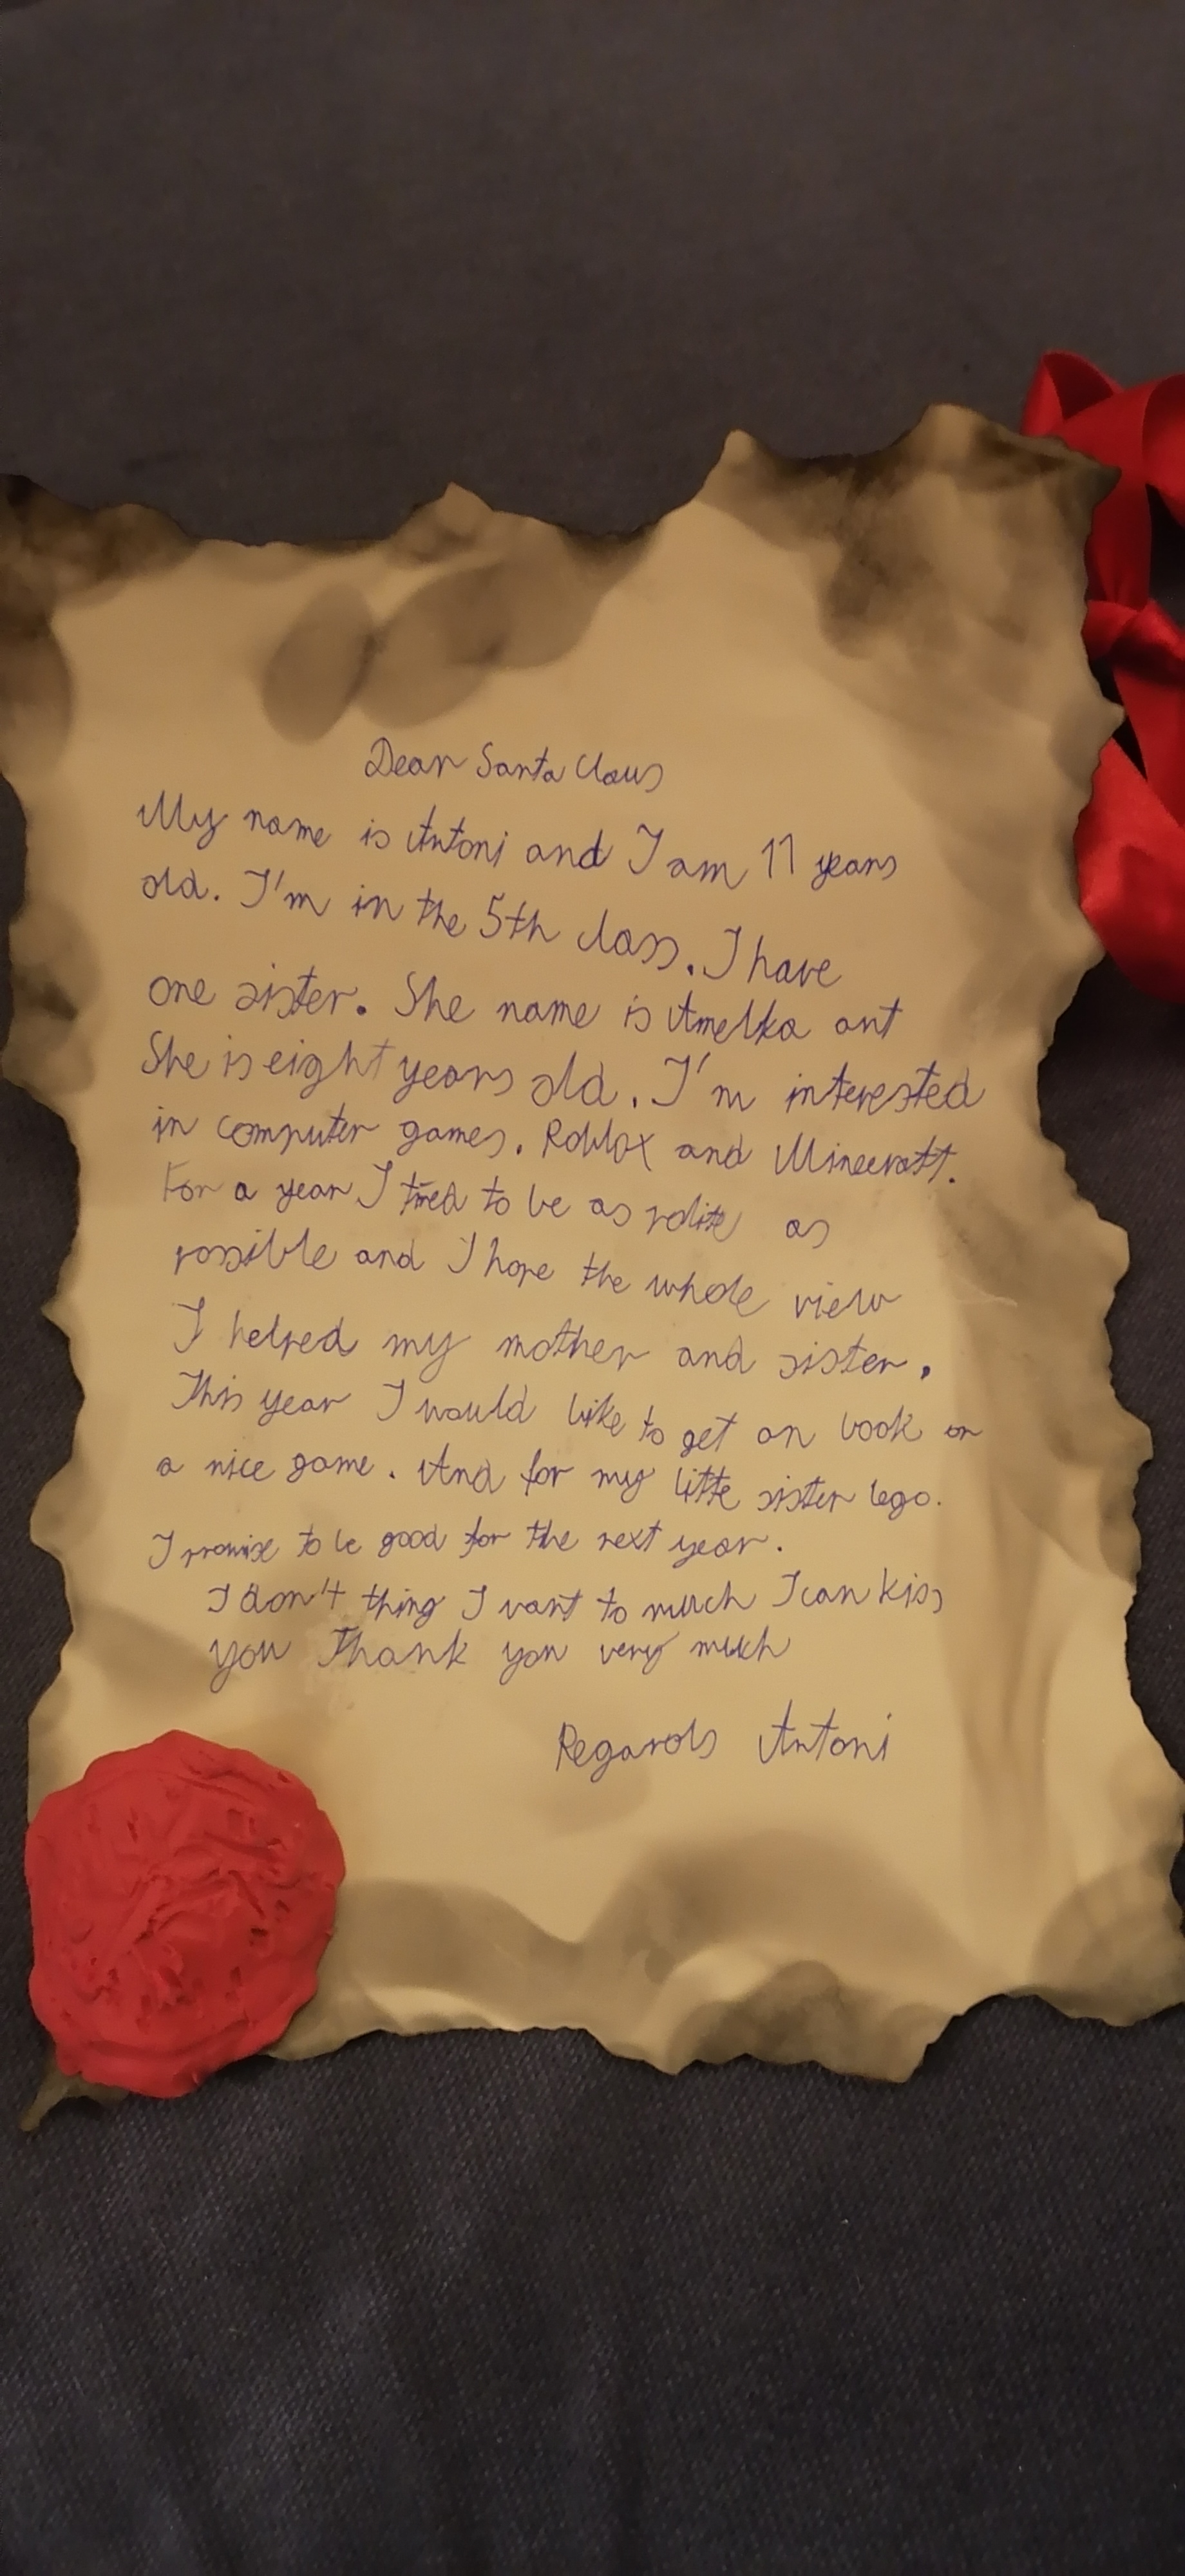 Dear Santa Claus
My name is Antoni and I am 11 years
old. I'm in the 5th class. I have
one sister. She name is Amelka ant
She is eight years old. I'm interested
in computer games. Roblox and Minecratt.
For a year I tried to be as polite as
possible and I hope the whole view
I helped my mother and sister.
This year I would like to get an book or
a nice game. And for my litte sister lego.
I promise to be good for the next year.
I don't thing I want to much I can kiss
you Thank you very much
Regards Antoni